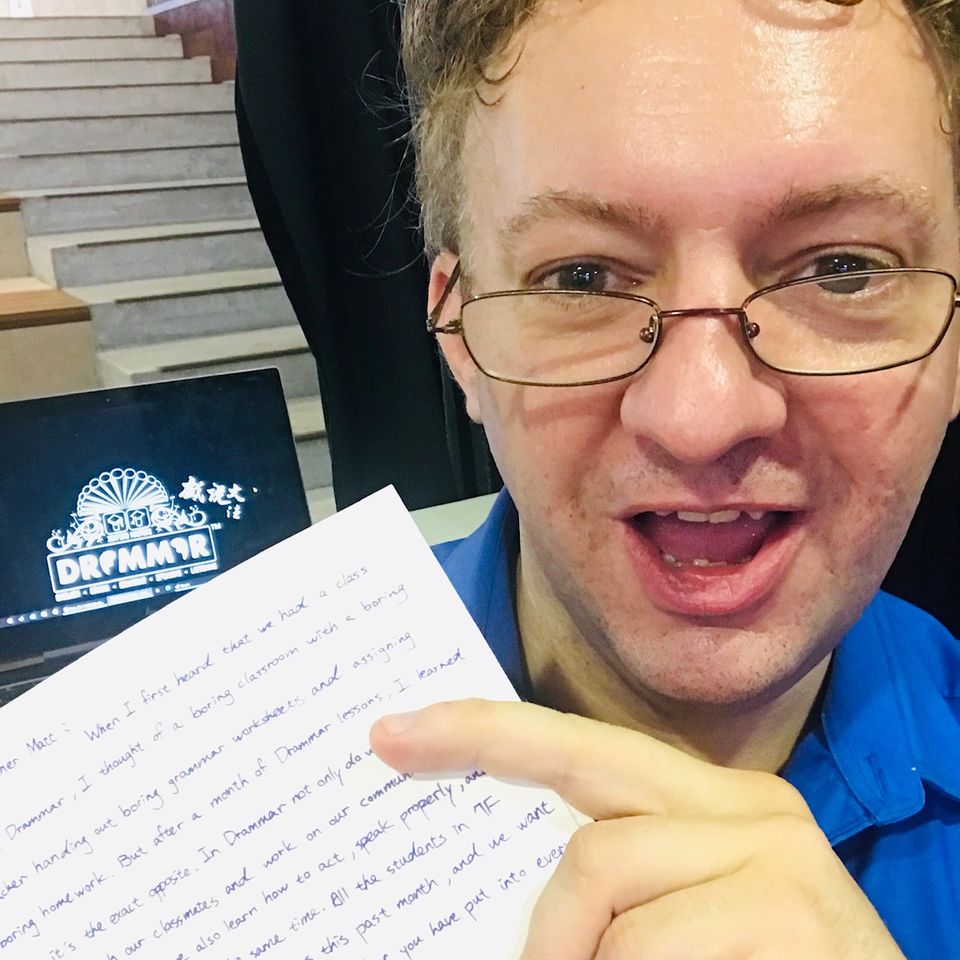 戲説文法
DRAMMAR
TM
her Matt: When I first heard that we had a class
Drammar, I thought of a boring classroom with a boring
cher handing out boring grammar worksheets and assigning
boring homework. But after a month of Drammar lessons, I learned
it's the exact opposite. In Drammar not only do w
h our classmates and work on our commun
e also learn how to act, speak properly, and
he same time. All the students in 7F
s this past month, and we want
you have put into every